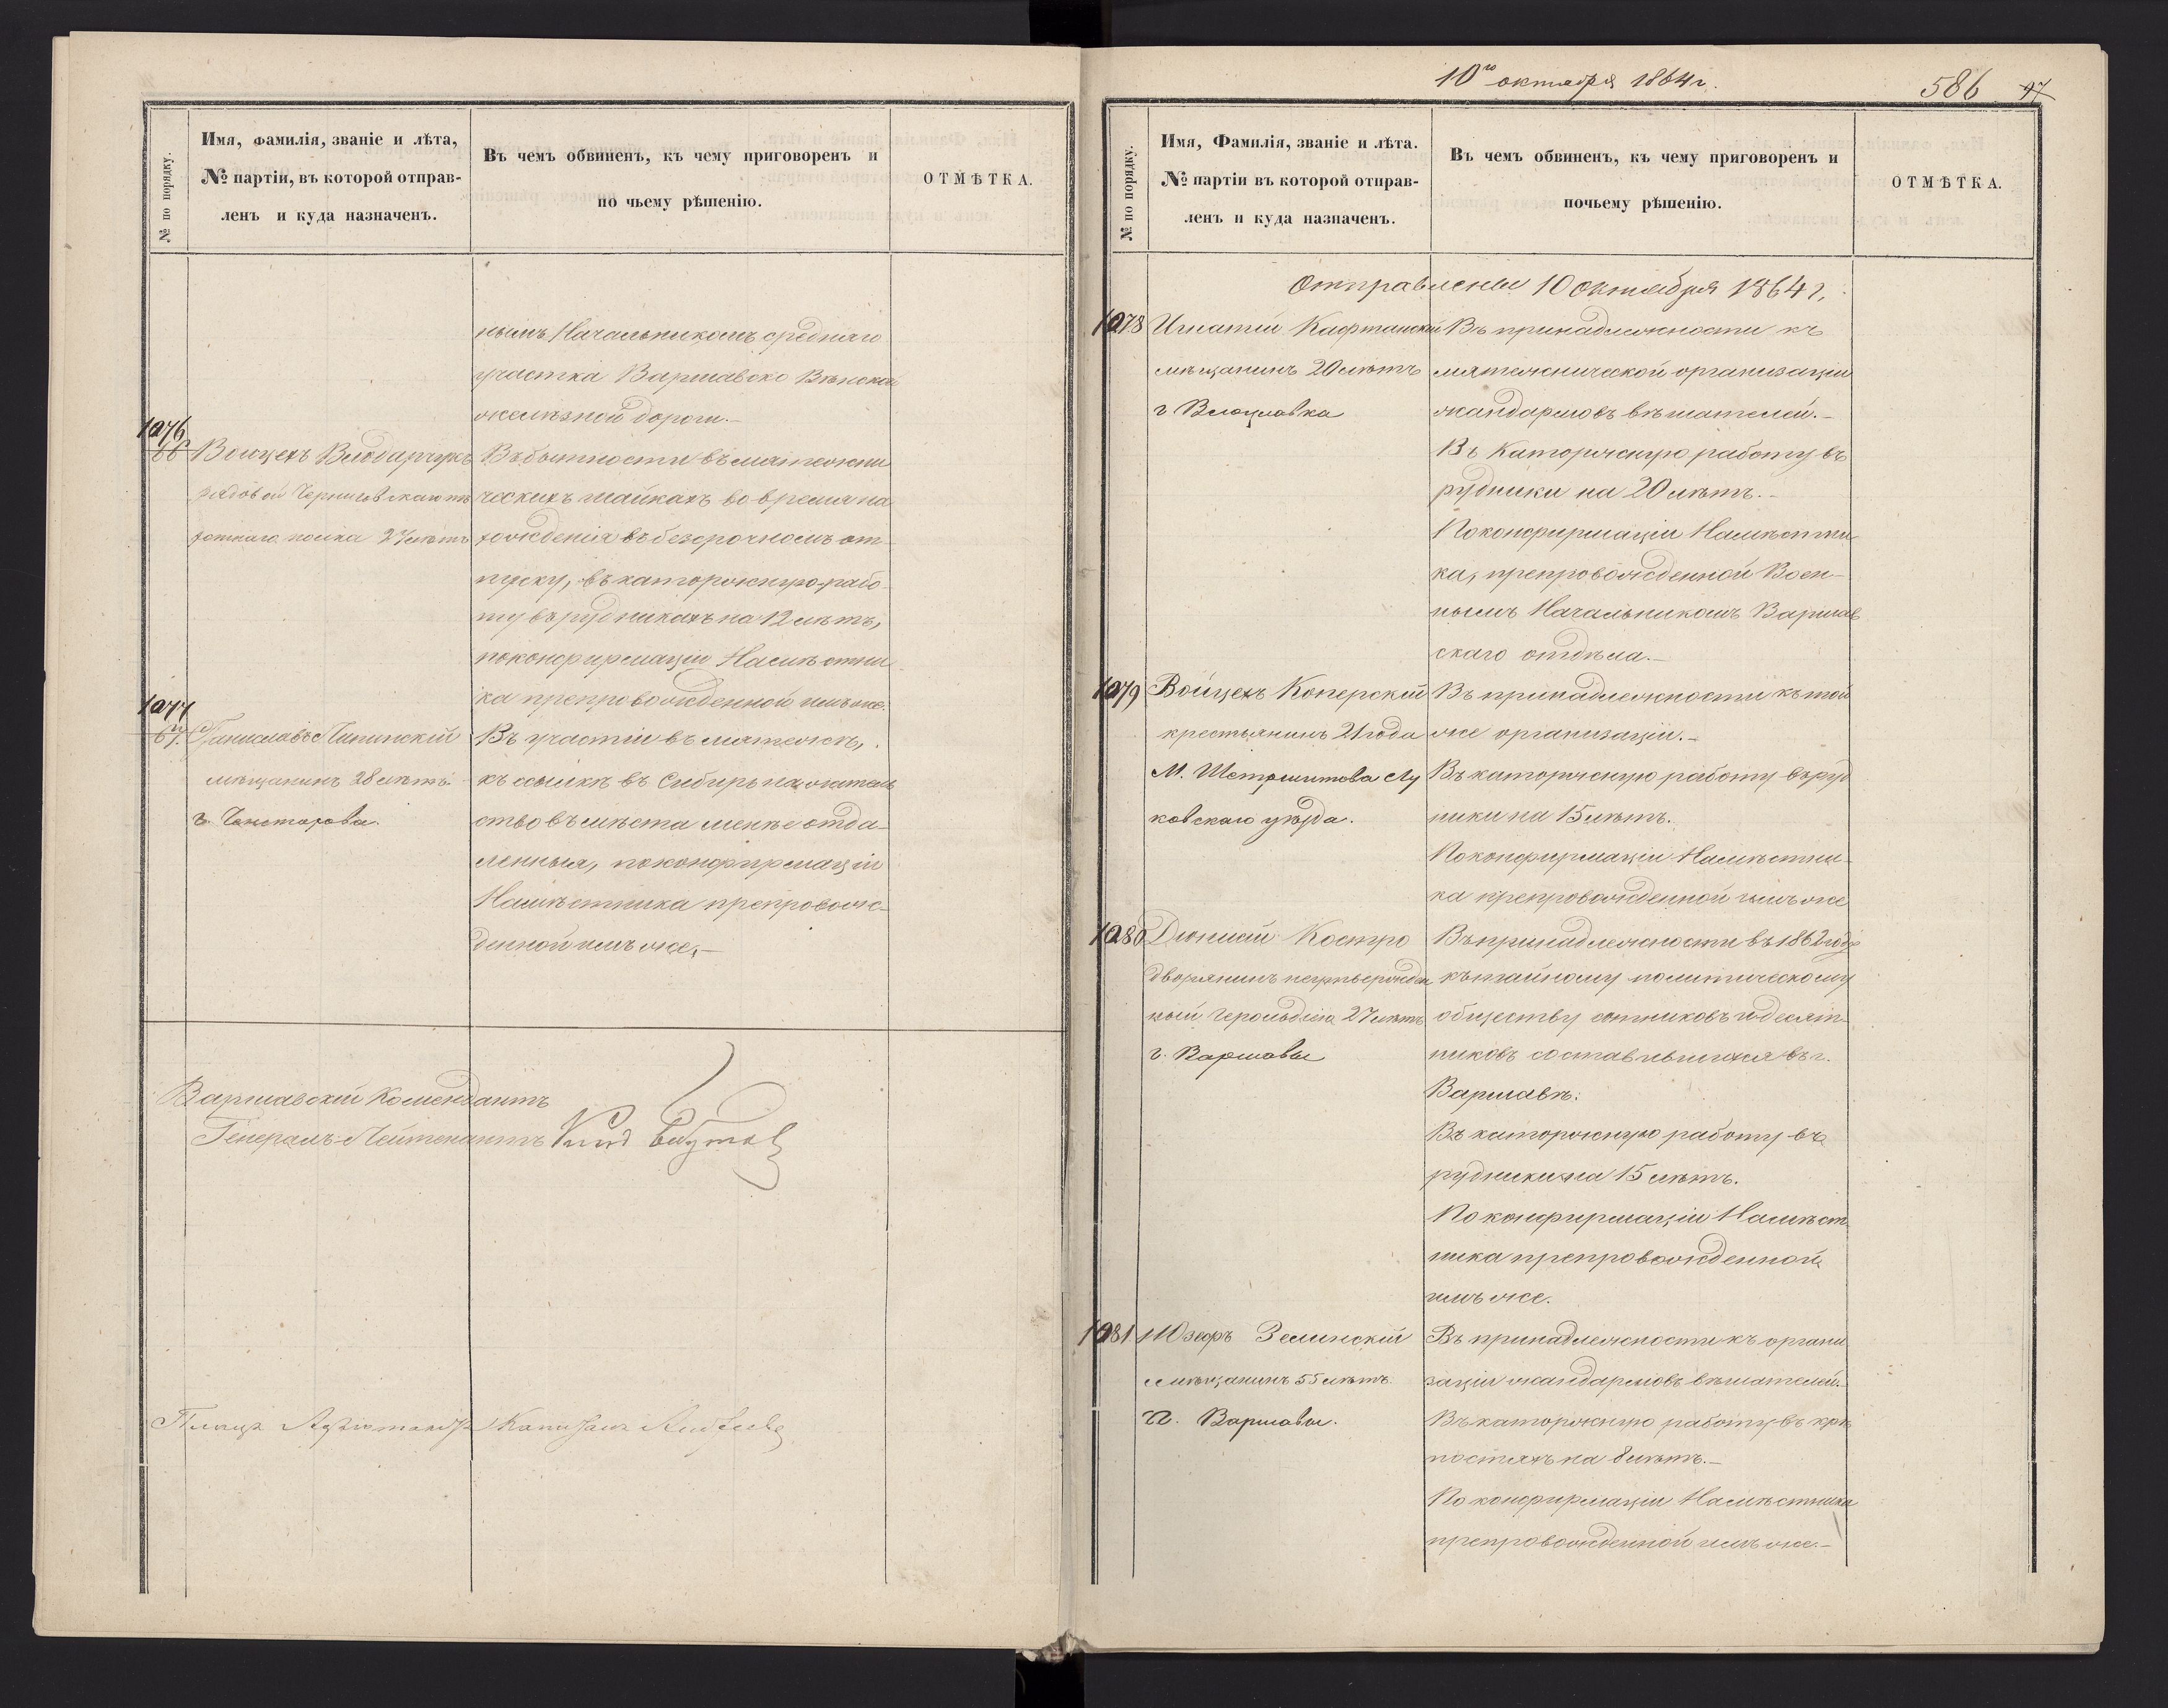 № по порядку.
Имя, фамилія, званіе и лѣта,
№ партіи, въ которой отправ-
ленъ и куда назначенъ.
Въ чемъ обвиненъ, къ чему приговоренъ и
по чьему рѣшенію.
ОТМѢТКА.
нымъ Начальникомъ средняго
участка Варшавско Вѣнской
желѣзной дороги.
1076
66
Войцехъ
рядовой Черниговскаго пѣ
хотнаго полка 27 лѣтъ
Въ бытности въ мятежни
ческихъ шайкахъ во время на
хожденія въ безсрочномъ от-
пуску, въ каторжную рабо-
ту въ рудникахъ на 12 лѣтъ,
по конфирмаціи Намѣстни
ка препровожденной имъ же.
1077
67.
Станиславъ Липинскій
мѣщанинъ 28 лѣтъ.
г. Ченстохова.
Въ участіи въ мятежѣ,
къ ссылкѣ въ Сибирь на житель
ство въ мѣста менѣе отда-
ленныя, по конфирмаціи
Намѣстника препровож-
денной имъ же.
Варшавскій Комендантъ
Генералъ-Лейтенантъ
Плацъ Адъютантъ Капитанъ
10го октября 1864 г.
586 97
№ по порядку.
Имя, Фамилія, званіе и лѣта.
№ партіи въ которой отправ-
ленъ и куда назначенъ.
Въ чемъ обвиненъ, къ чему приговоренъ и
почьему рѣшенію.
ОТМѢТКА.
Отправлены 10 октября 1864 г.
1078
Игнатій Кафтанскій
мѣщанинъ 20 лѣтъ
г Влоцлавка
Въ принадлежности къ
мятежнической организаціи
жандармовъ вѣшателей.
Въ Каторжную работу въ
рудники на 20 лѣтъ.
По конфирмаціи Намѣстни
ка, препровожденной Воен-
нымъ Начальникомъ Варшав
скаго отдѣла.
1079
Войцехъ Коперскій
крестьянинъ 21 года
Лу
ковскаго уѣзда.
Въ принадлежности къ той
же организаціи.
Въ каторжную работу въ руд
ники на 15 лѣтъ.
По конфирмаціи Намѣстни-
ка препровожденной имъ же
1080
Діонисій Костро
дворянинъ неутвержден
ный Герольдіею 27 лѣтъ
г. Варшавы
Въ принадлежности въ 1862 годѣ
къ тайному политическому
обществу сотниковъ и десят-
никовъ составившихся въ г.
Варшавѣ.
Въ каторжную работу въ
рудники на 15 лѣтъ.
По конфирмаціи Намѣст
ника препровожденной
имъ же.
1081
Юзефъ Зелинскій
мѣщанинъ 55 лѣтъ.
г. Варшавы.
Въ принадлежности къ органи
заціи жандармовъ вѣшателей.
Въ каторжную работу въ крѣ
постяхъ на 8 лѣтъ.
По конфирмаціи Намѣстника
препровожденной имъ же.